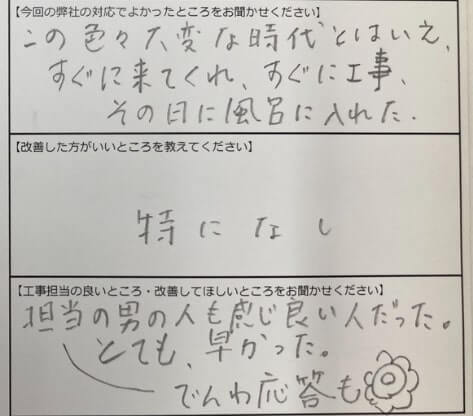 【今回の弊社の対応でよかったところをお聞かせください】
この色々大変な時代とはいえ、
すぐに来てくれ、すぐに工事、
その日に風呂に入れた.
【改善した方がいいところを教えてください】
特になし
【工事担当の良いところ・改善してほしいところをお聞かせください】
担当の男の人も感じ良い人だった。
とても、早かった。
でんわ応答も